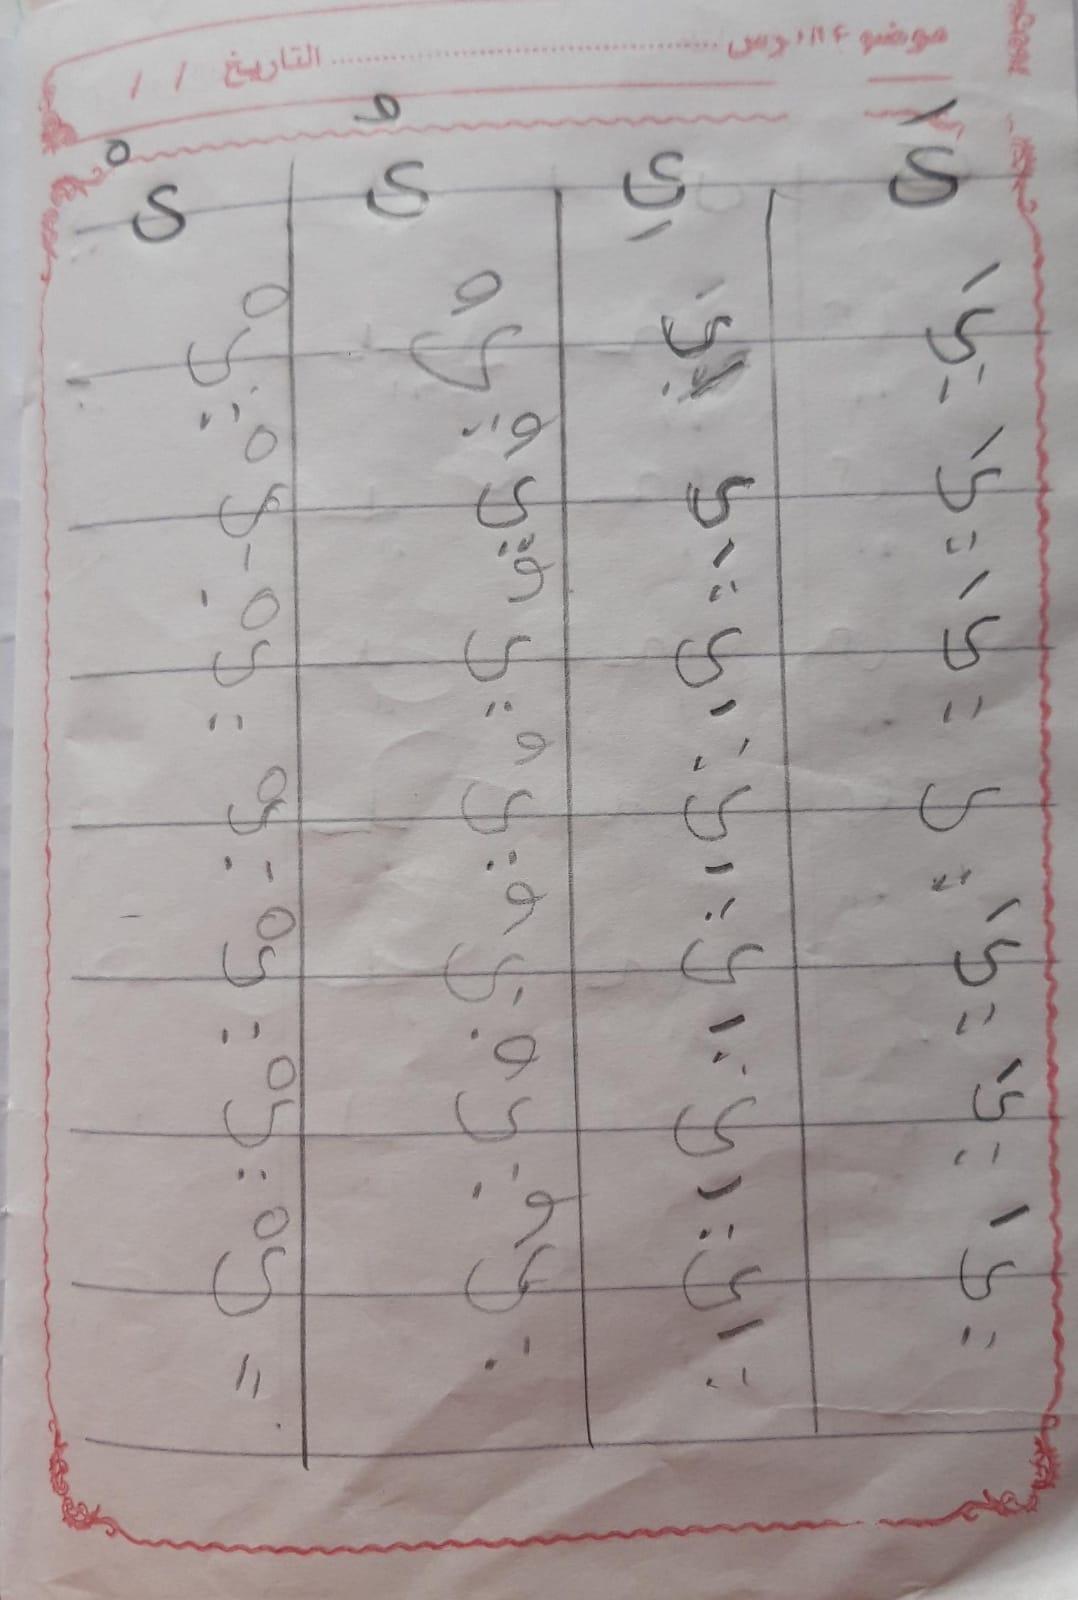 موضوع الدرس ........................ التاريخ / /
يَ يِ يُ يْ
يَ يِ يُ يْ
يَ يِ يُ يْ
يَ يِ يُ يْ
ي يِ يُ يْ
يَ يِ يُ يْ
يَ يِ يُ يْ
يَ يِ يُ يْ